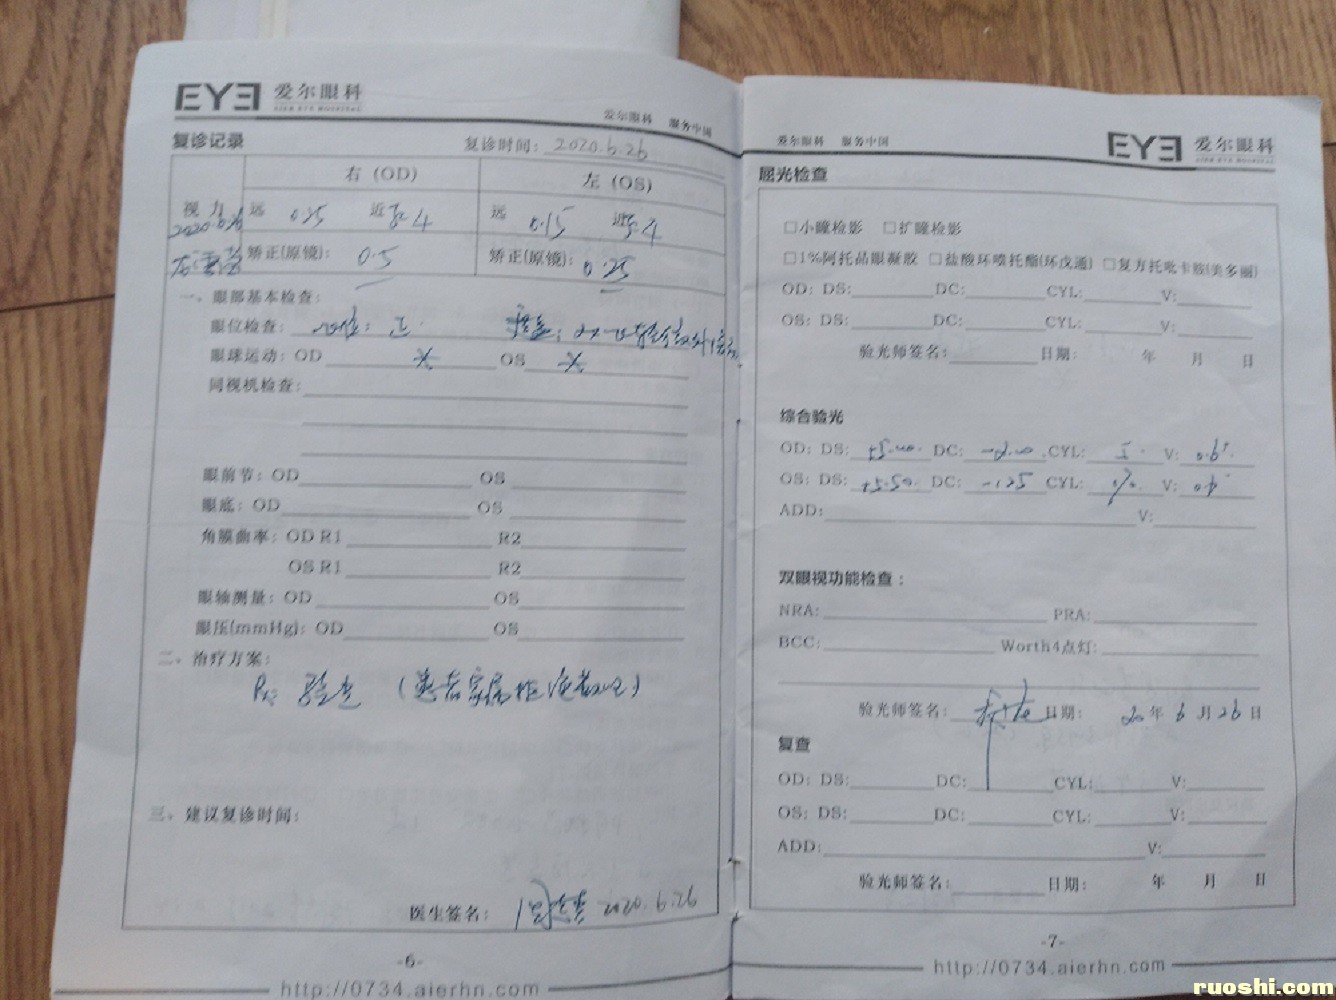 EYE 爱尔眼科
AIER EYE HOSPITAL
爱尔眼科 服务中国
复诊记录 复诊时间: 2020.6.26
右 (OD) 左 (OS)
视力 远 0.25 近 4 远 0.15 近 4
2020.6.26
矫正(原镜): 0.5 矫正(原镜): 0.25
一、眼部基本检查:
眼位检查: 眼位: 正
眼球运动: OD OS
同视机检查:
眼前节: OD OS
眼底: OD OS
角膜曲率: OD R1 R2
OS R1 R2
眼轴测量: OD OS
眼压(mmHg): OD OS
二、治疗方案:
Rx: 验光 (患者家属拒绝散瞳)
三、建议复诊时间:
医生签名: 2020.6.26
-6-
http://0734.aierhn.com
爱尔眼科 服务中国
EYE 爱尔眼科
AIER EYE HOSPITAL
屈光检查
□小瞳检影 □扩瞳检影
□1%阿托品眼凝胶 □盐酸环喷托酯(环戊通) □复方托吡卡胺(美多丽)
OD: DS: DC: CYL: V:
OS: DS: DC: CYL: V:
验光师签名: 日期: 年 月 日
综合验光
OD: DS: +5.00 DC: -2.00 CYL: V: 0.6
OS: DS: +5.50 DC: -1.25 CYL: V: 0.6
ADD: V:
双眼视功能检查:
NRA: PRA:
BCC: Worth4点灯:
验光师签名: 日期: 20 年 6 月 26 日
复查
OD: DS: DC: CYL: V:
OS: DS: DC: CYL: V:
ADD: V:
验光师签名: 日期: 年 月 日
-7-
http://0734.aierhn.com
ruoshi.com